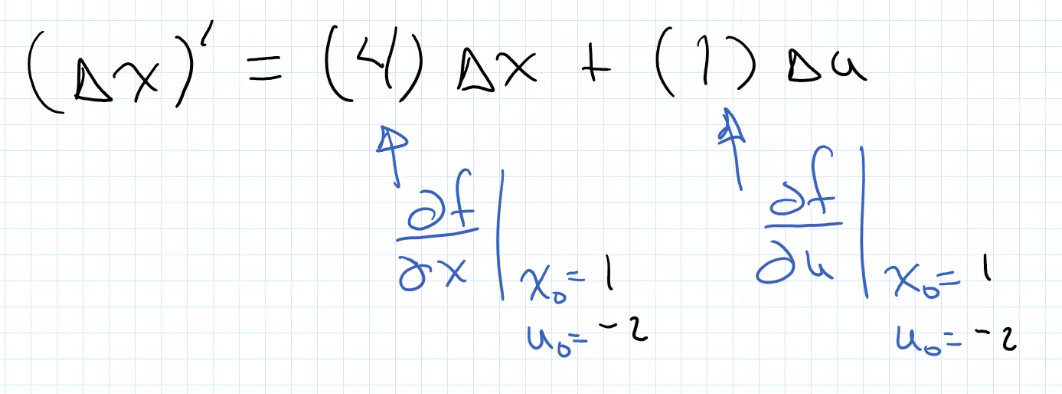 (Δx)' = (4) Δx + (1) Δu
∂f/∂x | x₀ = 1 u₀ = -2 ∂f/∂u | x₀ = 1 u₀ = -2